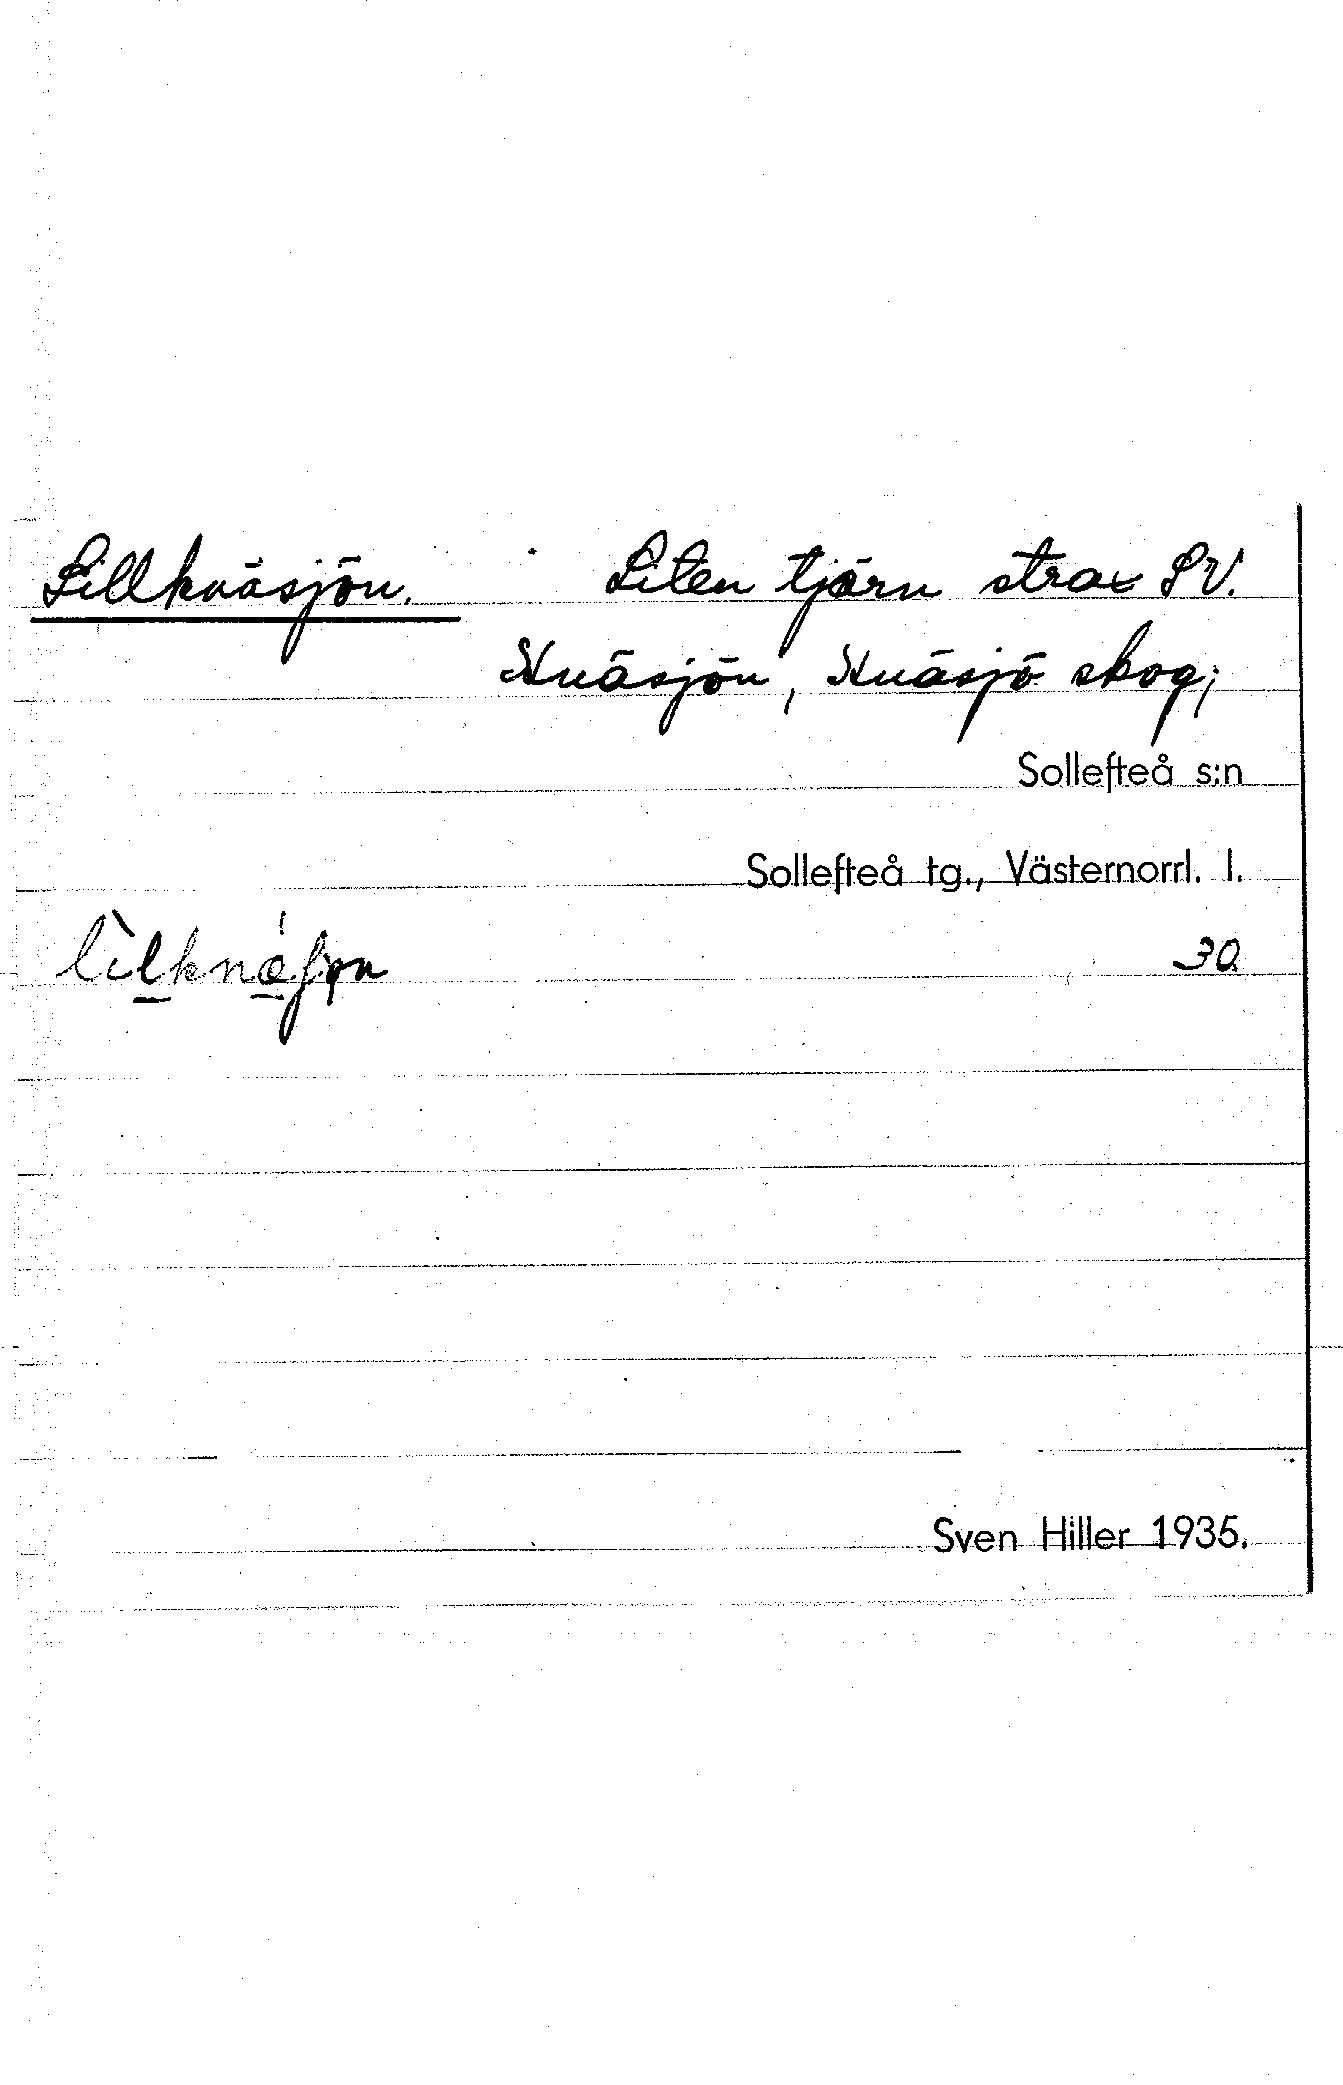 Lillknäsjön. Liten tjärn strax SV.
Knäsjön, Knäsjö skog;
Sollefteå s:n
Sollefteå tg., Västernorrl. l.
30.
Sven Hiller 1935.